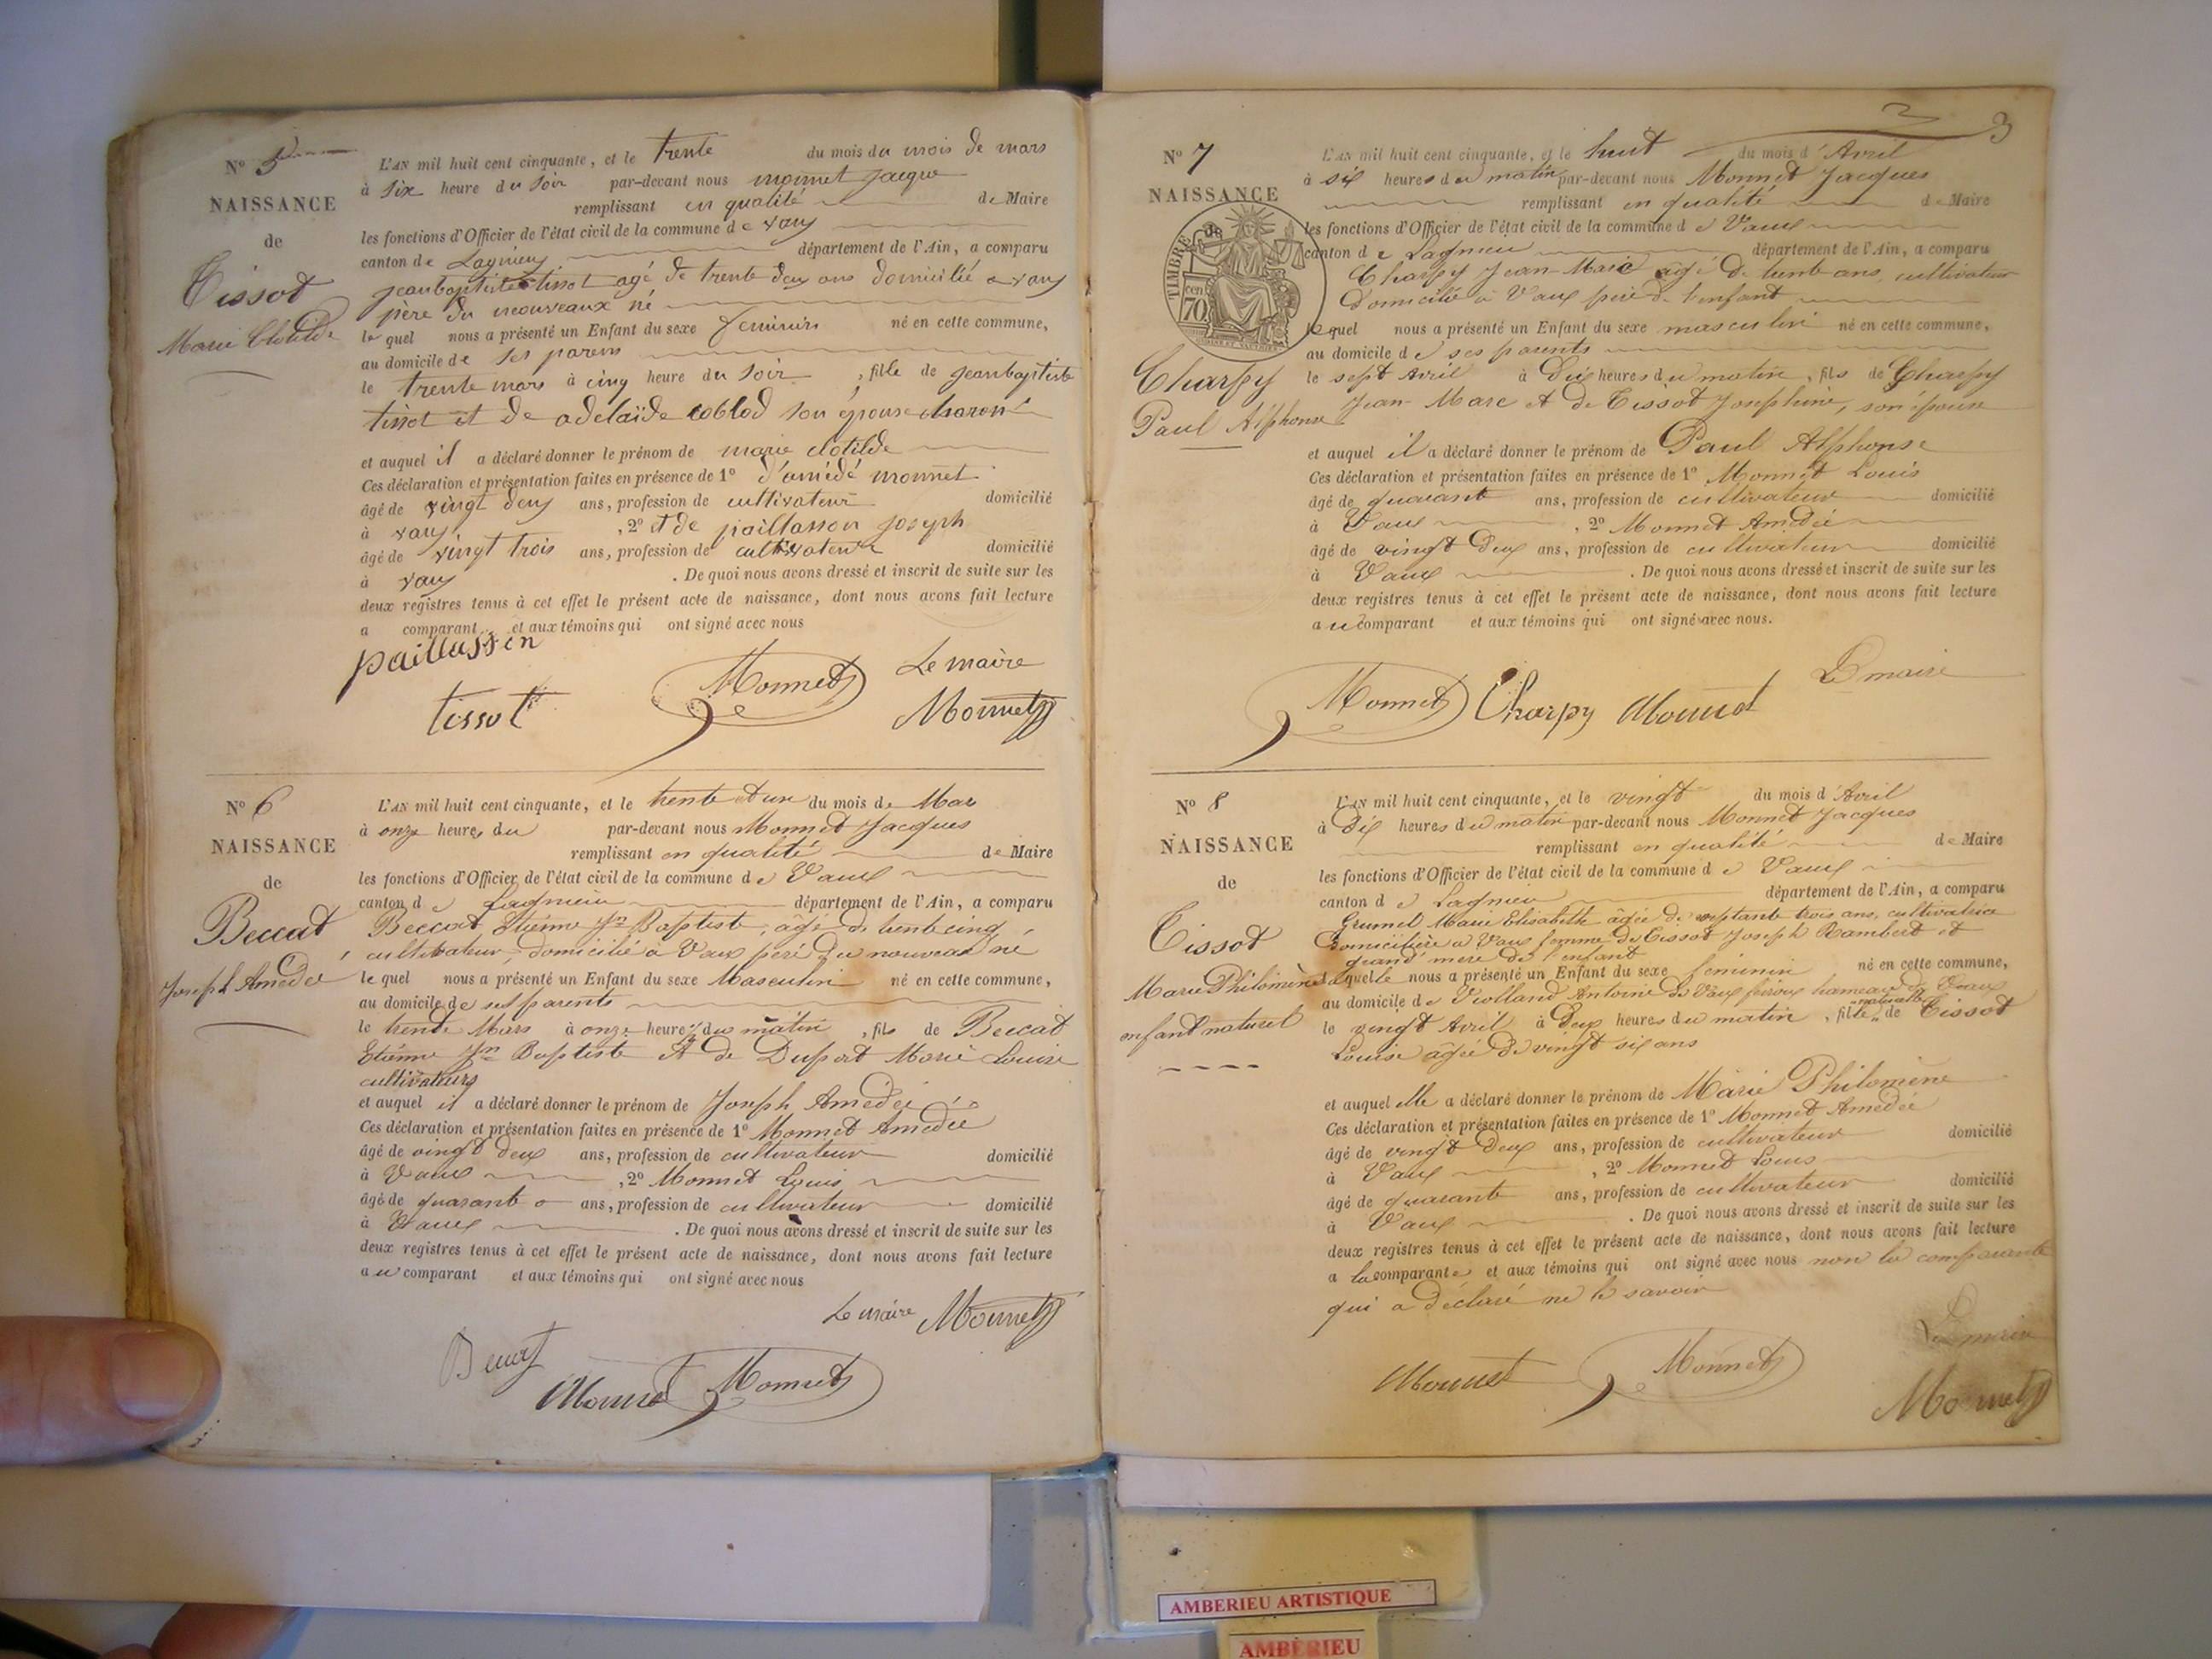 N° 5
NAISSANCE
de
Tissot
Marie Clotilde
L'AN mil huit cent cinquante, et le trente du mois du mois de mars
à six heure du soir par-devant nous monnet jacque
remplissant en qualité de Maire
les fonctions d'Officier de l'état civil de la commune de vaux
canton de Lagnieu département de l'Ain, a comparu
jeanbaptiste tissot agé de trente deux ans domicilié a vaux
père du nouveaux né
le quel nous a présenté un Enfant du sexe feminin né en cette commune,
au domicile de ses parens
le trente mars à cinq heure du soir, fille de jeanbaptiste
tissot et de adelaïde son épouse
et auquel il a déclaré donner le prénom de marie clotilde
Ces déclaration et présentation faites en présence de 1° d'amédé monnet
âgé de vingt deux ans, profession de cultivateur domicilié
à vaux, 2° et de paillasson joseph
âgé de vingt trois ans, profession de cultivateur domicilié
à vaux. De quoi nous avons dressé et inscrit de suite sur les
deux registres tenus à cet effet le présent acte de naissance, dont nous avons fait lecture
a comparant et aux témoins qui ont signé avec nous
paillasson
tissot Monnet Le maire
Monnet
N° 6
NAISSANCE
de
Beccat
Joseph Amédée
L'AN mil huit cent cinquante, et le trente et un du mois de Mar
à onze heures du par-devant nous Monnet Jacques
remplissant en qualité de Maire
les fonctions d'Officier de l'état civil de la commune de Vaux
canton de Lagnieu département de l'Ain, a comparu
Beccat Etienne Jn Baptiste, âgé de trente cinq
cultivateur domicilié à Vaux père du nouveau né
le quel nous a présenté un Enfant du sexe Masculin né en cette commune,
au domicile de ses parents
le trente Mars à onze heures du matin, fils de Beccat
Etienne Jn Baptiste et de Duport Marie Louise
cultivateurs
et auquel il a déclaré donner le prénom de Joseph Amédée
Ces déclaration et présentation faites en présence de 1° Monnet Amédée
âgé de vingt deux ans, profession de cultivateur domicilié
à Vaux, 2° Monnet Louis
âgé de quarante ans, profession de cultivateur domicilié
à Vaux. De quoi nous avons dressé et inscrit de suite sur les
deux registres tenus à cet effet le présent acte de naissance, dont nous avons fait lecture
au comparant et aux témoins qui ont signé avec nous
Le maire Monnet
Beccat Monnet Monnet
3
N° 7
NAISSANCE
de
TIMBRE
cen
70
Charpy
Paul Alphonse
L'AN mil huit cent cinquante, et le huit du mois d'Avril
à six heures du matin par-devant nous Monnet Jacques
remplissant en qualité de Maire
les fonctions d'Officier de l'état civil de la commune de Vaux
canton de Lagnieu département de l'Ain, a comparu
Charpy Jean-Marie âgé de trente ans, cultivateur
domicilié à Vaux père de l'enfant
lequel nous a présenté un Enfant du sexe masculin né en cette commune,
au domicile de ses parents
le sept Avril à Dix heures du matin, fils de Charpy
Jean Marc et de Tissot Josephine, son épouse
et auquel il a déclaré donner le prénom de Paul Alphonse
Ces déclaration et présentation faites en présence de 1° Monnet Louis
âgé de quarante ans, profession de cultivateur domicilié
à Vaux, 2° Monnet Amédée
âgé de vingt deux ans, profession de cultivateur domicilié
à Vaux. De quoi nous avons dressé et inscrit de suite sur les
deux registres tenus à cet effet le présent acte de naissance, dont nous avons fait lecture
au comparant et aux témoins qui ont signé avec nous.
Monnet Charpy Monnet Le maire
N° 8
NAISSANCE
de
Tissot
Marie Philomène
enfant naturel
L'AN mil huit cent cinquante, et le vingt du mois d'Avril
à Dix heures du matin par-devant nous Monnet Jacques
remplissant en qualité de Maire
les fonctions d'Officier de l'état civil de la commune de Vaux
canton de Lagnieu département de l'Ain, a comparu
Grumel Marie Elisabeth âgée de septante trois ans, cultivatrice
domiciliée à Vaux femme de Tissot Joseph Rambert et
grand'mère de l'enfant
laquelle nous a présenté un Enfant du sexe feminin né en cette commune,
au domicile de Violland Antoine de Vaux hameau de Vaux
le vingt Avril à Deux heures du matin, fille naturelle de Tissot
Louise âgée de vingt six ans
et auquel elle a déclaré donner le prénom de Marie Philomène
Ces déclaration et présentation faites en présence de 1° Monnet Amédée
âgé de vingt deux ans, profession de cultivateur domicilié
à Vaux, 2° Monnet Louis
âgé de quarante ans, profession de cultivateur domicilié
à Vaux. De quoi nous avons dressé et inscrit de suite sur les
deux registres tenus à cet effet le présent acte de naissance, dont nous avons fait lecture
a la comparante et aux témoins qui ont signé avec nous non la comparante
qui a déclaré ne le savoir
Le maire
Monnet Monnet Monnet
AMBERIEU ARTISTIQUE
AMBERIEU